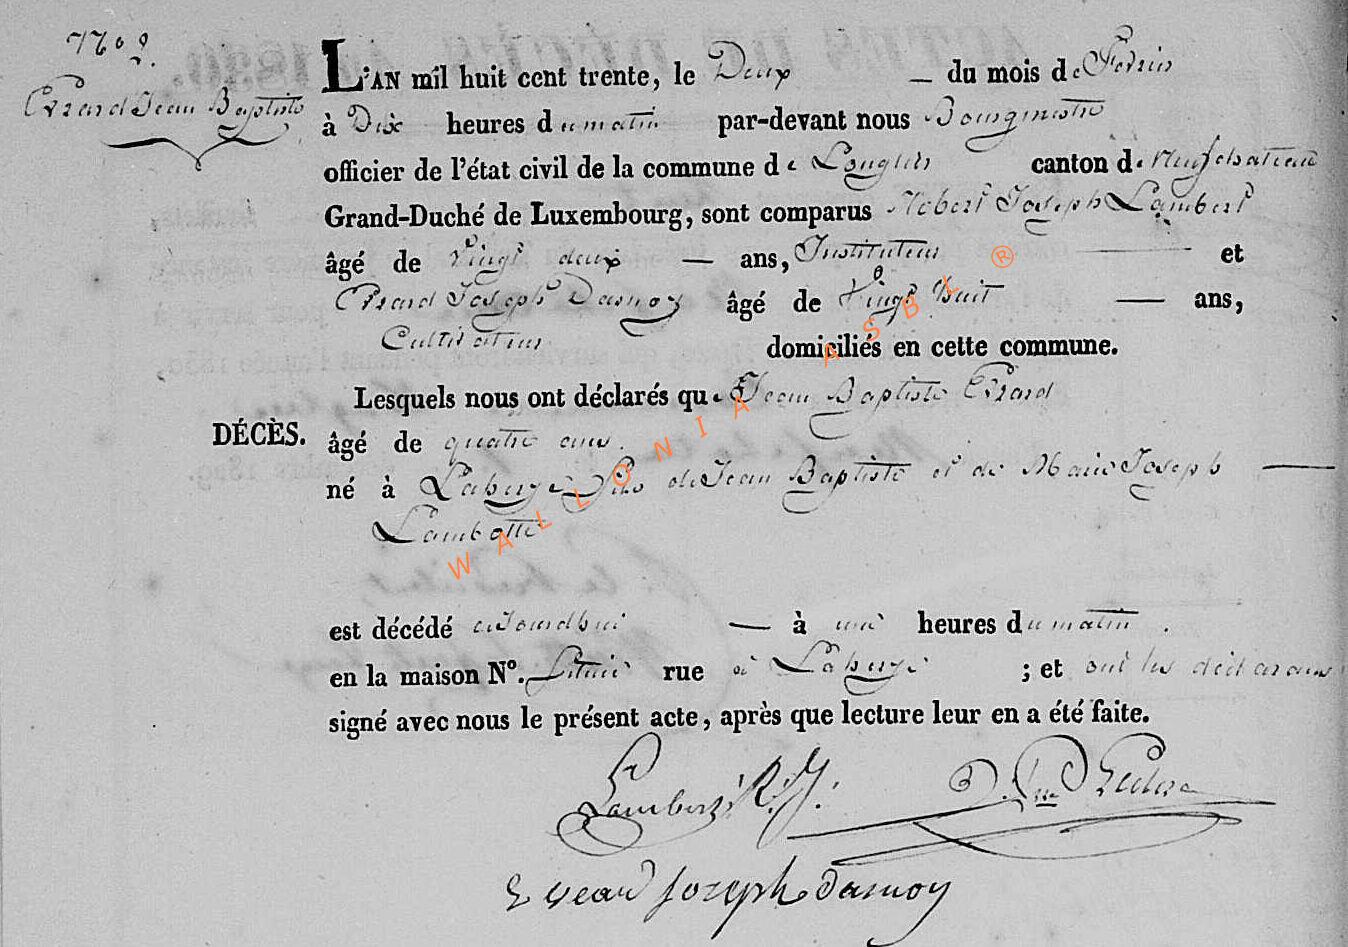 N.o 2.
Evrard Jean Baptiste
L'AN mil huit cent trente, le Deux — du mois de Fevrier
à Dix heures du matin par-devant nous Bourgmestre
officier de l'état civil de la commune de Longlier canton de Neufchateau
Grand-Duché de Luxembourg, sont comparus Robert Joseph Lambert
âgé de Vingt deux — ans, Instituteur — et
Evrard Joseph Dasnoy âgé de Vingt huit — ans,
Cultivateur domiciliés en cette commune.
Lesquels nous ont déclarés que Jean Baptiste Evrard
DÉCÈS. âgé de quatre ans.
né à Lahérie fils de Jean Baptiste et de Marie Joseph —
Lambotte
est décédé aujourdhui — à une heures du matin.
en la maison N°. Située rue à ; et ont les déclarans
signé avec nous le présent acte, après que lecture leur en a été faite.
Lambert R. J.
Evrard Joseph Dasnoy
WALLONIA ASBL ®